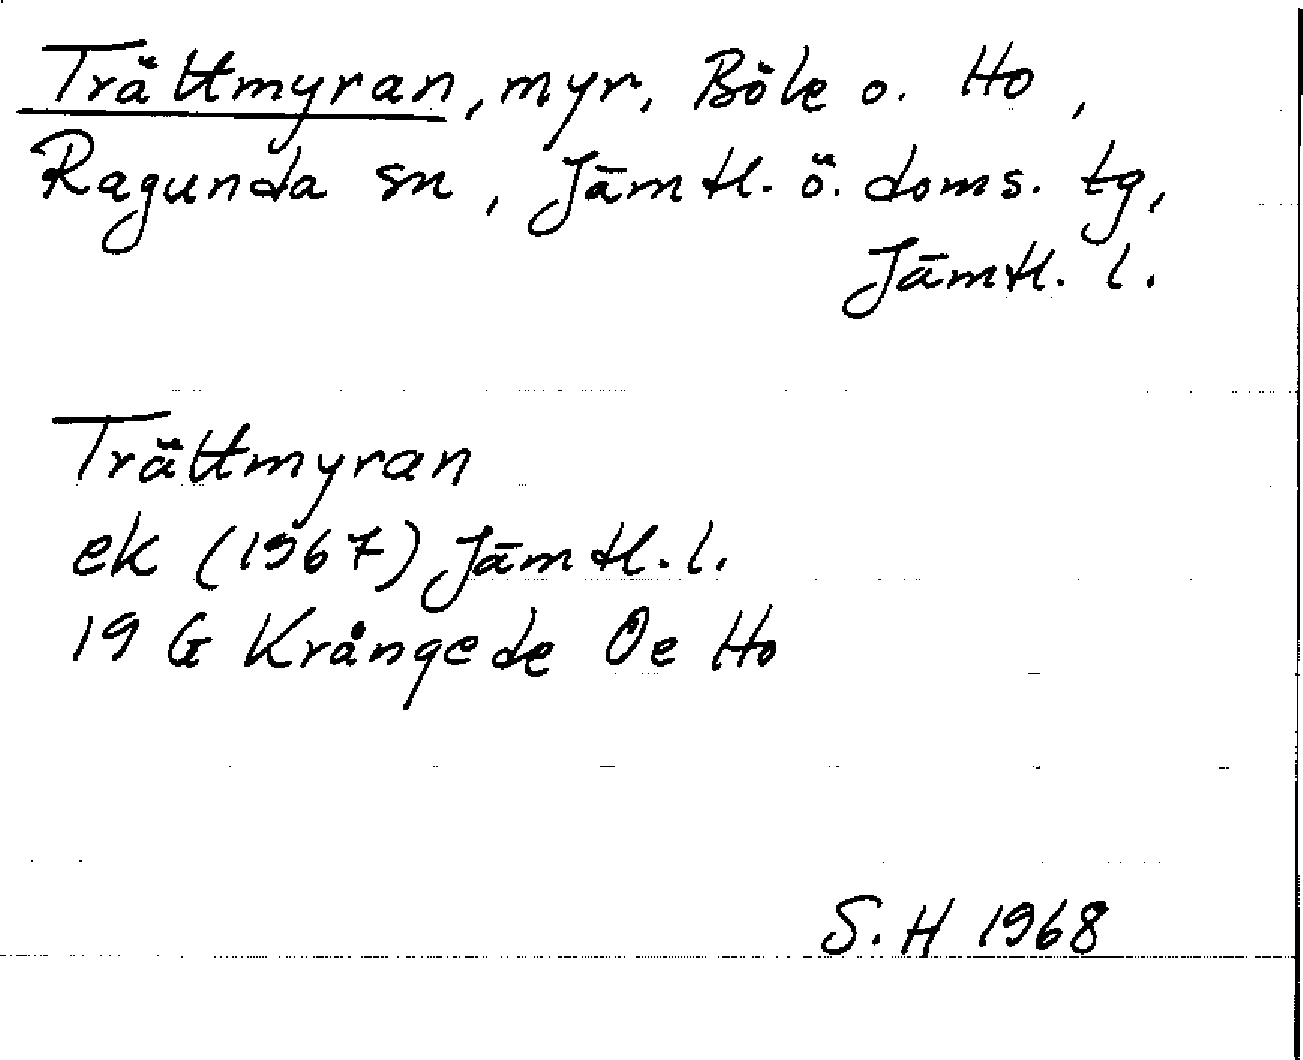 Trättmyran, myr, Böle o. Ho,
Ragunda sn, Jämtl. ö. doms. tg,
Jämtl. l.
Trättmyran
ek (1967) Jämtl. l.
19 G Krångede Öe Ho
S. H 1968